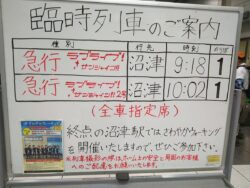 臨時列車のご案内
種別 行先 時刻 のりば
急行 ラブライブ!サンシャイン!!号 沼津 9:18 1
急行 ラブライブ!サンシャイン!!2号 沼津 10:02 1
(全車指定席)
終点の沼津駅ではさわやかウォーキング
を開催いたしますので、ぜひご参加下さい。
※列車撮影の際はホーム上の安全と周囲のお客様
へのご配慮をお願いいたします。